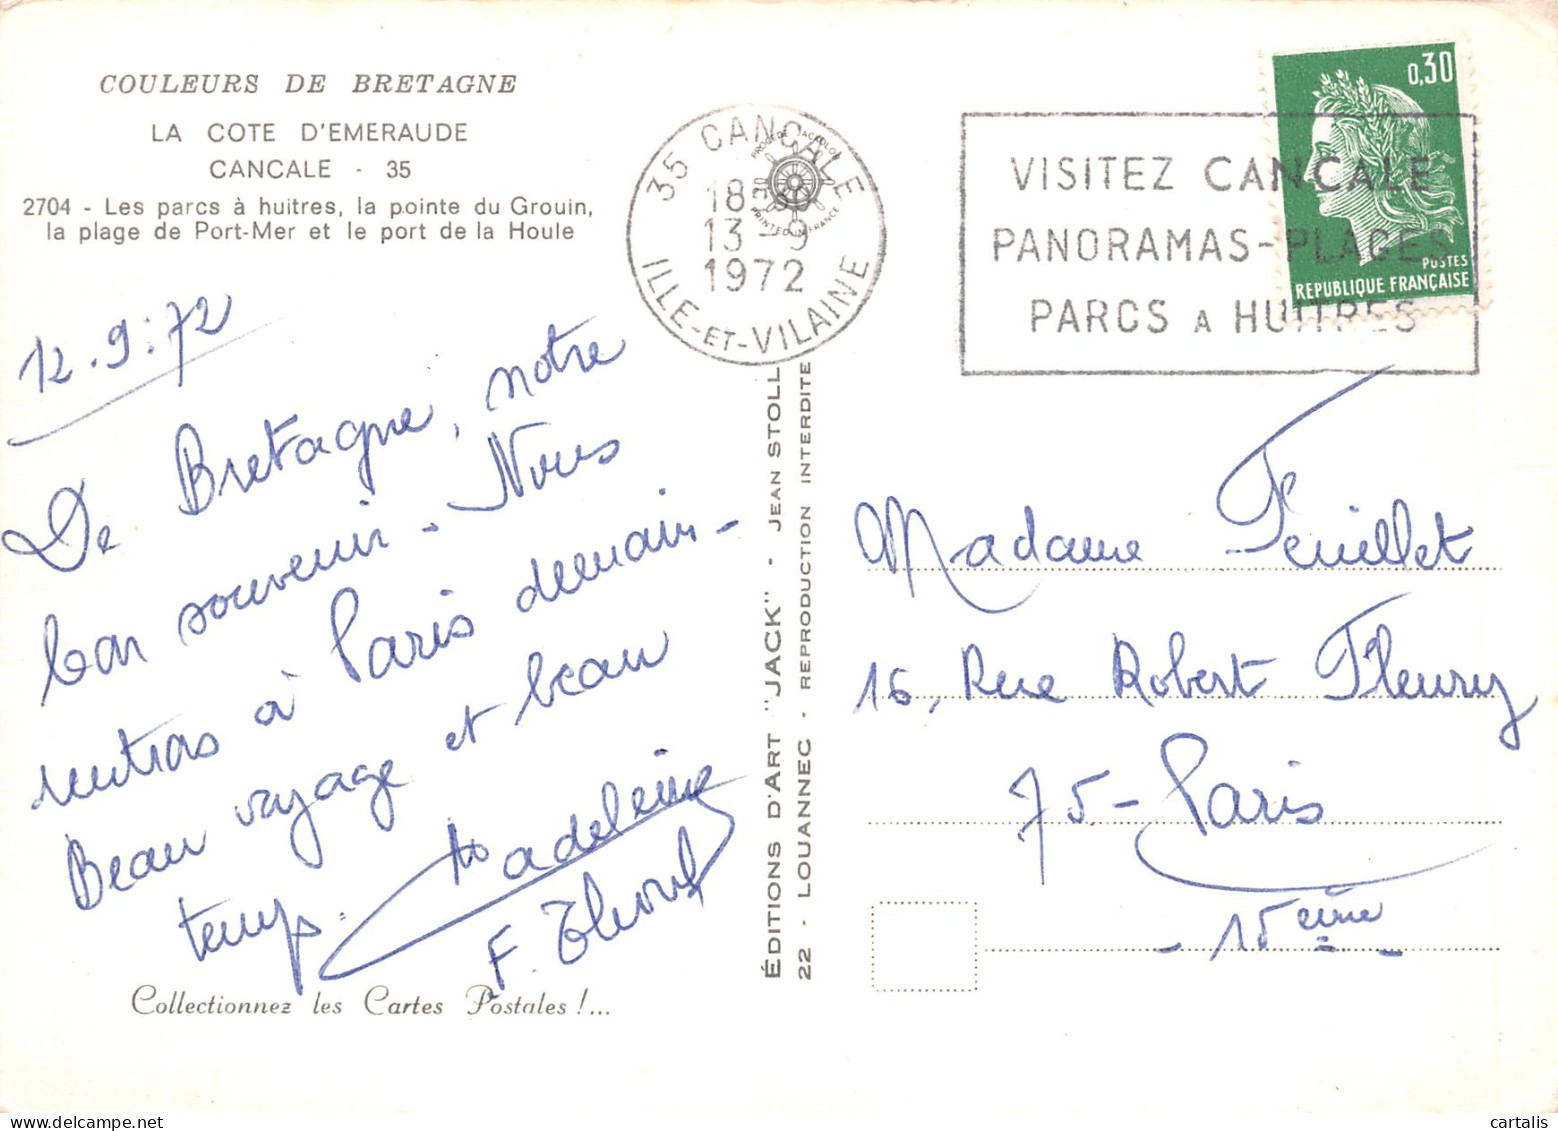 COULEURS DE BRETAGNE
LA COTE D'EMERAUDE
CANCALE - 35
2704 - Les parcs à huitres, la pointe du Grouin,
la plage de Port-Mer et le port de la Houle
12.9.72
De Bretagne, notre
bon souvenir - Nous
rentrons à Paris demain -
Beau voyage et beau
temps.
Madeleine
F.
Collectionnez les Cartes Postales !...
35 CANCALE
18
13 - 9
1972
ILLE-ET-VILAINE
PRINTED IN FRANCE
ÉDITIONS D'ART "JACK" - JEAN STOLL
22 - LOUANNEC - REPRODUCTION INTERDITE
VISITEZ CANCALE
PANORAMAS-PLAGES
PARCS A HUITRES
0,30
POSTES
REPUBLIQUE FRANÇAISE
Madame Feuillet
16, Rue Robert Fleury
75 - Paris
- 15eme -
cartalis